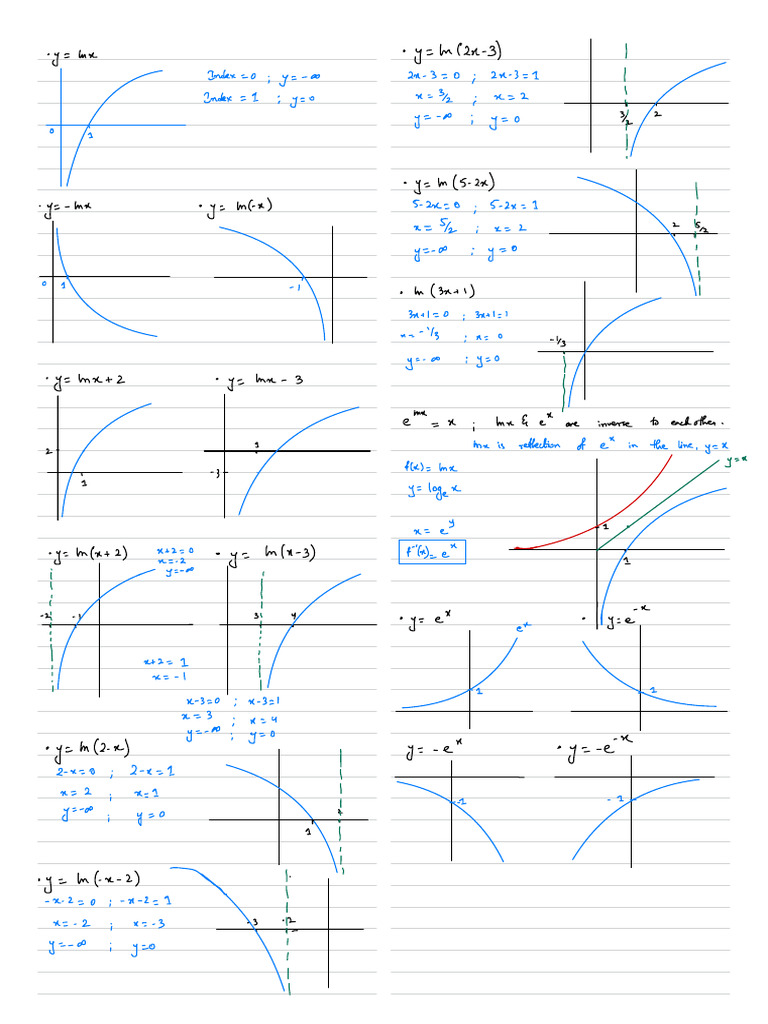 · y = lnx
Index = 0 ; y = -∞
Index = 1 ; y = 0
0 1
· y = -lnx
0 1
· y = ln(-x)
-1
· y = lnx + 2
2
1
· y = lnx - 3
1
-3
· y = ln(x+2)
x+2 = 0
x = -2
y = -∞
-2 -1
x+2 = 1
x = -1
· y = ln(x-3)
3 4
x-3=0 ; x-3=1
x = 3 ; x = 4
y = -∞ ; y = 0
· y = ln(2-x)
2-x=0 ; 2-x=1
x = 2 ; x=1
y=-∞ ; y = 0
1
· y = ln(-x-2)
-x-2 = 0 ; -x-2 = 1
x = -2 ; x = -3
y = -∞ ; y=0
-3 -2
· y = ln(2x-3)
2x-3 = 0 ; 2x-3 = 1
x = 3/2 ; x = 2
y = -∞ ; y = 0
3/2 2
· y = ln(5-2x)
5-2x=0 ; 5-2x = 1
x = 5/2 ; x = 2
y = -∞ ; y = 0
2 5/2
· ln(3x+1)
3x+1=0 ; 3x+1=1
x = -1/3 ; x = 0
y = -∞ ; y = 0
-1/3
e^lnx = x ; lnx & e^x are inverse to each other.
lnx is reflection of e^x in the line, y = x
f(x) = lnx
y = logₑx
x = e^y
f⁻¹(x) = e^x
y = x
1
1
· y = e^x
e^x
1
· y = e^-x
1
y = -e^x
-1
· y = -e^-x
-1